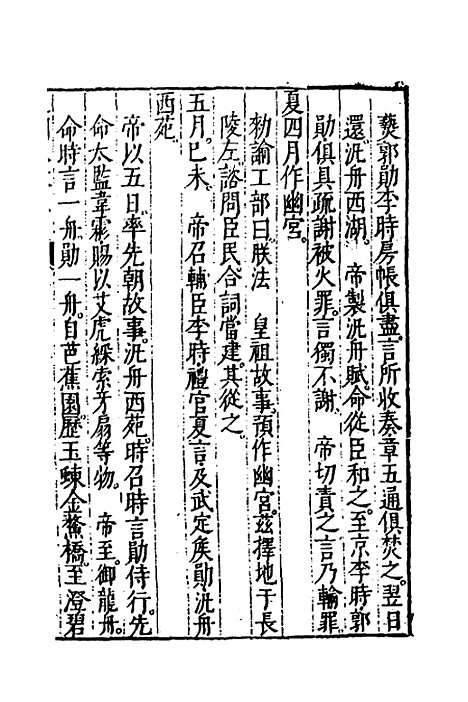 爇郭勛李時房帳俱盡言所收奏章五通俱焚之翌日
還泛舟西湖 帝製泛舟賦命從臣和之至京李時郭
勛俱具疏謝被火罪言獨不謝 帝切責之言乃輸罪
夏四月作幽宮
勑諭工部曰朕法 皇祖故事預作幽宮茲擇地于長
陵左諮問臣民合詞當建其從之
五月己未 帝召輔臣李時禮官夏言及武定矦勛泛舟
西苑
帝以五日率先朝故事泛舟西苑時召時言勛侍行先
命太監韋霦賜以艾虎綵索牙扇等物 帝至御龍舟
命時言一舟勛一舟自芭蕉園歷玉蝀金鰲橋至澄碧